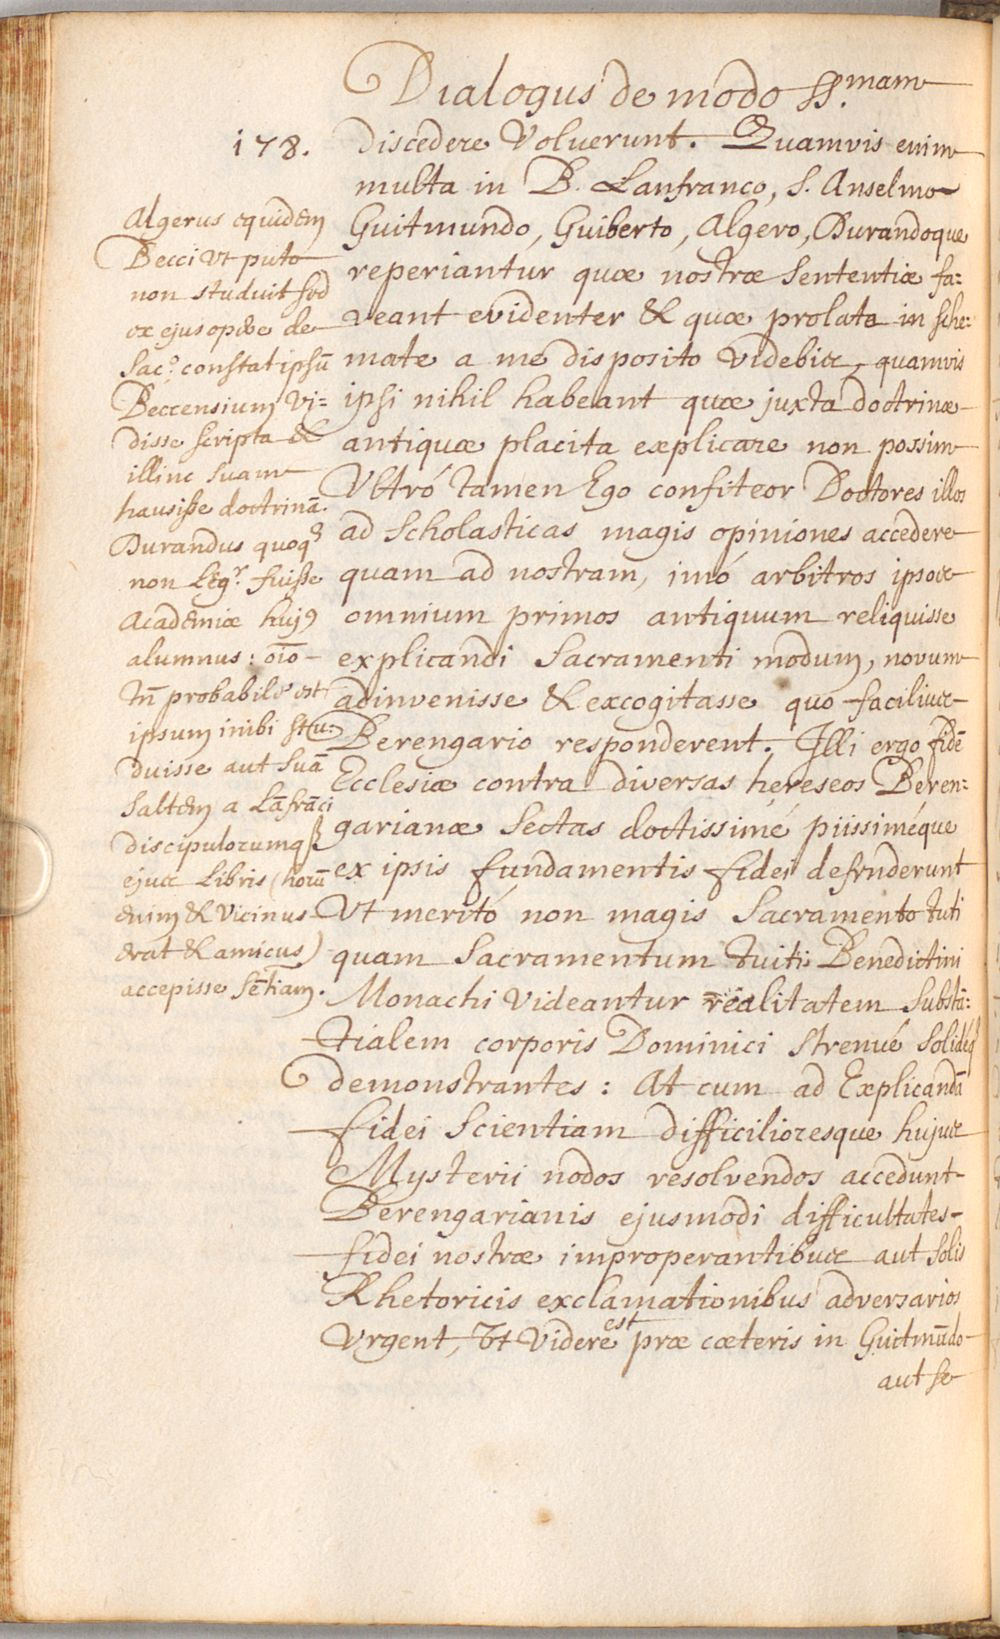 Dialogus de modo SS.mam
178.
discedere Voluerunt. Quamvis enim
multa in B. Lanfranco, S. Anselmo
Guitmundo, Guiberto, Algero, Durandoque
reperiantur quæ nostræ Sententiæ fa=
veant evidenter & quæ prolata in sche=
mate a me disposito videbis, quamvis
ipsi nihil habeant quæ juxta doctrinæ
antiquæ placita explicare non possim
Ultró tamen Ego confiteor Doctores illos
ad Scholasticas magis opiniones accedere
quam ad nostram, imó arbitros ipsos
omnium primos antiquum reliquisse
explicandi Sacramenti modum, novum
adinvenisse & excogitasse quo facilius
Berengario responderent. Illi ergo fidē
Ecclesiæ contra diversas hęreseos Beren=
garianæ Sectas doctissimé piissiméque
ex ipsis fundamentis fidei defenderunt
Ut meritó non magis Sacramento tuti
quam Sacramentum tuiti Benedictini
Monachi Videantur realitatem Substā=
tialem corporis Dominici Strenué Solidéq
demonstrantes : At cum ad Explicandā
fidei Scientiam difficilioresque hujus
Mysterii nodos resolvendos accedunt
Berengarianis ejusmodi difficultates
fidei nostræ improperantibus aut Solis
Rhetoricis exclamationibus adversarios
Urgent, Ut Videre est præ cæteris in Guitmūdo
aut se
Algerus equidem
Becci Ut puto
non studuit sed
ex ejus opere de
Sac.º constat ipsū
Beccensium Vi=
disse scripta &
illinc Suam
hausisse doctrinā.
Durandus quoq
non Legr. fuisse
Academiæ huj9
alumnus : oīo
tn̄ probabile est
ipsum inibi stu=
duisse aut Suā
Saltem a Lāfrāci
discipulorumq
ejus Libris (horū
enim & Vicinus
erat & amicus)
accepisse Sētiam.